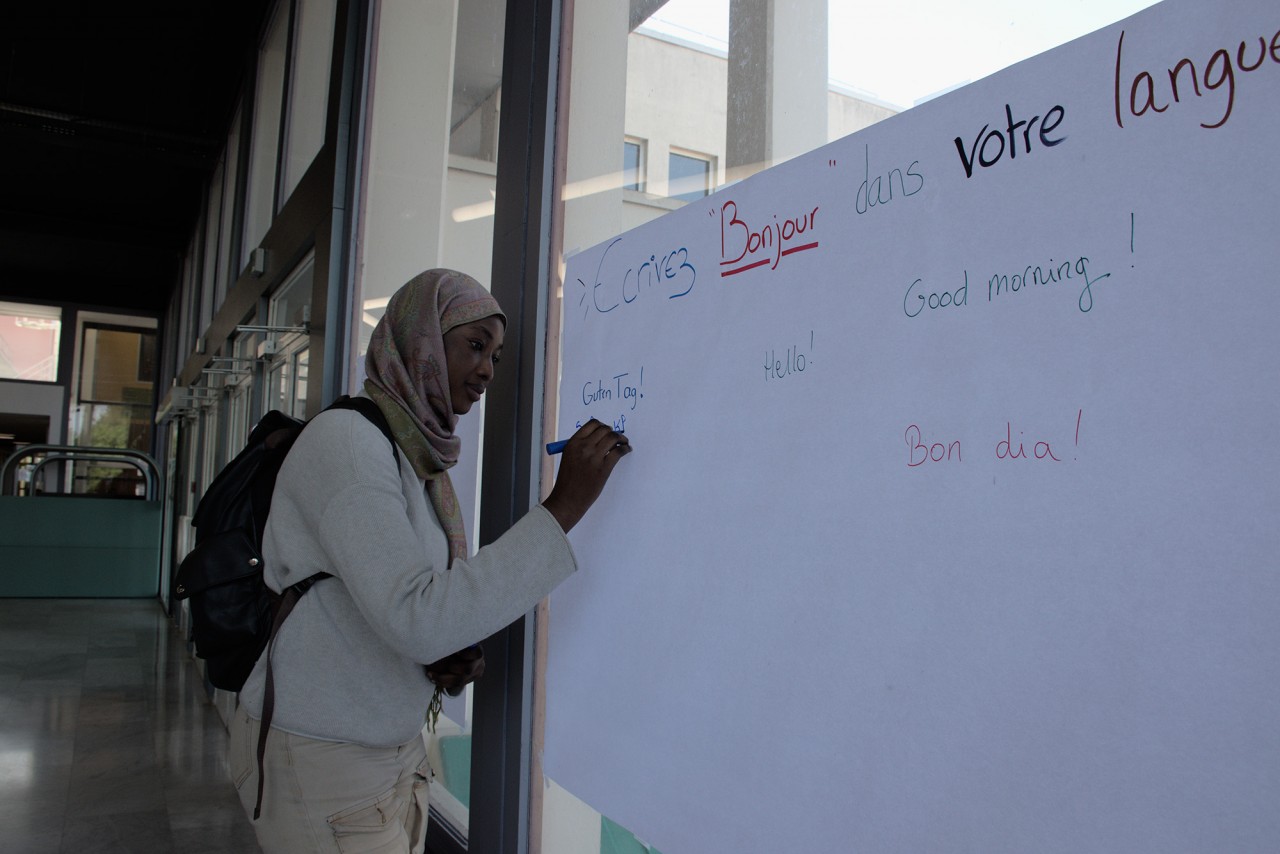 Ecrivez "Bonjour" dans votre langue
Good morning !
Hello!
Guten Tag!
Bon dia!